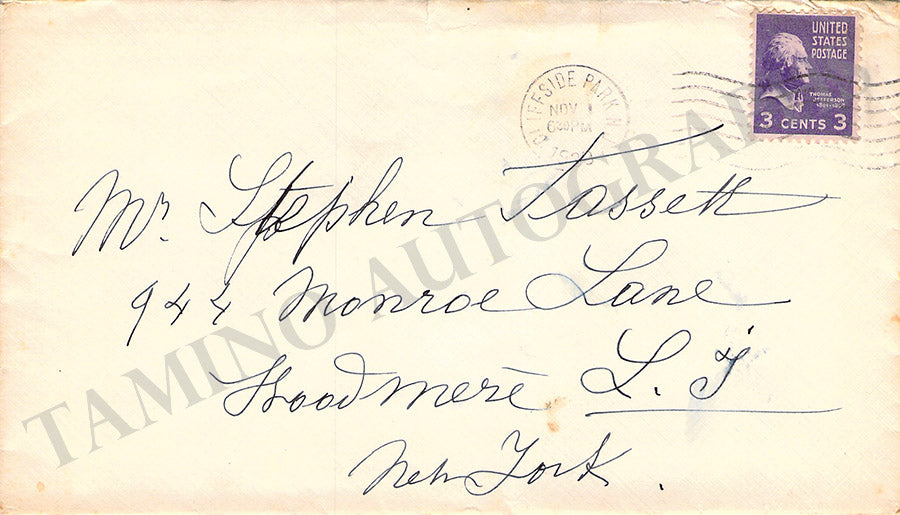 UNITED
STATES
POSTAGE
THOMAS
JEFFERSON
3 CENTS 3
CLIFFSIDE PARK N
NOV 1
PM
Mr. Stephen Tassett
944 Monroe Lane
Woodmere L. I
New York.
TAMINO AUTOGRAPHS